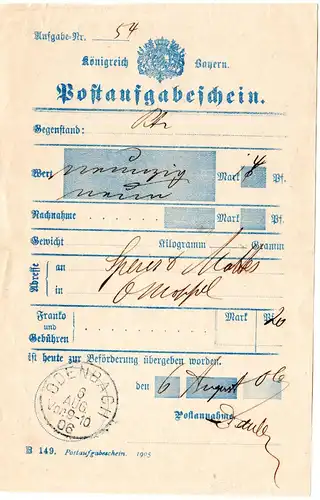 Aufgabe-Nr. 54
Königreich Bayern.
Postaufgabeschein.
Gegenstand:
Wert neunzig Mark Pf.
neun
Nachnahme Mark Pf.
Gewicht Kilogramm Gramm
Adresse an
in
Franko und Gebühren Mark Pf. 20
ist heute zur Beförderung übergeben worden.
den 6 August 06
ODENBACH
6
AUG
Vor 9-10
06
Postannahme
B 149. Postaufgabeschein. 1905